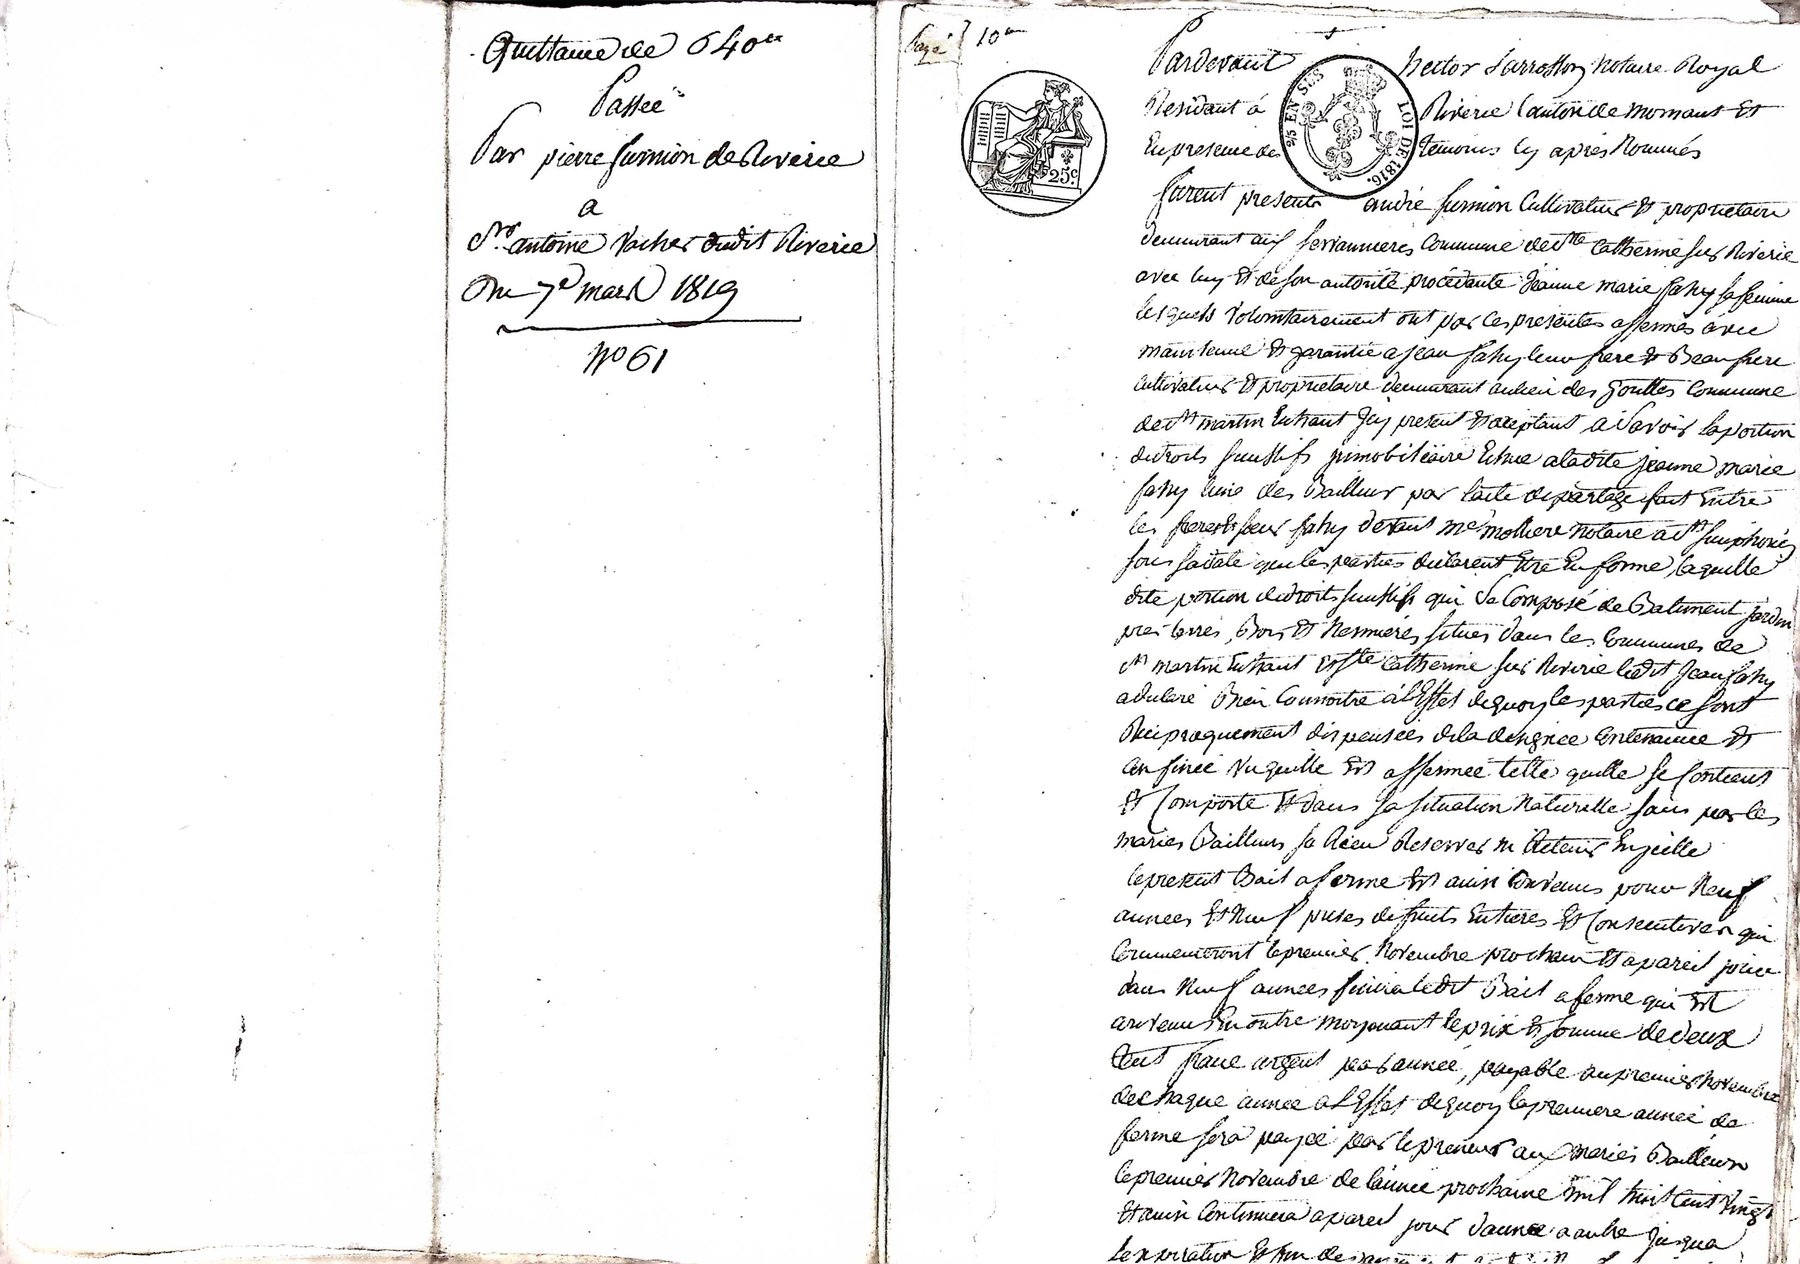 Quittance de 640##
Passée
Par pierre fumion de Riverie
a
Sr. antoine Vacher dudit Riverie
Du 7e mars 1819
No 61
Payé 10##
25c.
25 EN SUS LOI DE 1816.
Pardevant hector Jarrosson Notaire Royal
Residant à Riverie Canton de mornant Et
En presence des temoins cy après Nommés
furent presents andré fumion Cultivateur Et proprietaire
demeurant aux commune de Ste Catherine sur Riverie
avec luy Et de son autorité procédante Jeanne marie fahy sa femme
lesquels Volontairement ont par ces presentes affermés avec
maintenue Et garantie a jean fahy leur frere Et Beaufrere
Cultivateur Et proprietaire demeurant au lieu des gouttes Commune
de St martin Enhaut Icy present Et acceptant a Savoir la portion
de droits successifs jmmobiliaire Echue a ladite jeanne marie
fahy lune des Bailleur par lacte de partage fait Entre
les freres Et soeur fahy devant me moliere Notaire a St Simphorien
sous sa date que les parties déclarent Etre En forme, laquelle
dite portion de droits successifs qui Se Compose de Batiment jardin
pres terres, Bois Et hermieres situes dans les Communes de
St martin Enhaut Et Ste Catherine sur Riverie ledit Jean fahy
a declaré Bien Connoitre à l'Effet de quoy les parties ce sont
Reciproquement dispensées de la designee Contenance Et
Confinée Vu quelle Est affermée telle quelle se Contient
Et Comporte Et dans sa situation Naturelle sans par les
mariés Bailleurs se Rien Reserver ni Retenir En jcelle
le present Bail a ferme Est ainsi Convenus pour Neuf
années Et Neuf prises de fruits Entieres Et Consecutives qui
Commenceront le premier Novembre prochain Et a pareil jour
dans Neuf années finira ledit Bail a ferme qui Est
Convenu En outre moyenant le prix Et somme de deux
Cent franc argent par année, payable au premier Novembre
de chaque année a l'Effet de quoy la premiere année de
ferme sera payée par le preneur aux mariés Bailleurs
le premier Novembre de lannée prochaine mil huit Cent Vingt
Et ainsi Continuera a pareil jour dannée a autre jusqua
lexpiration Et fin de